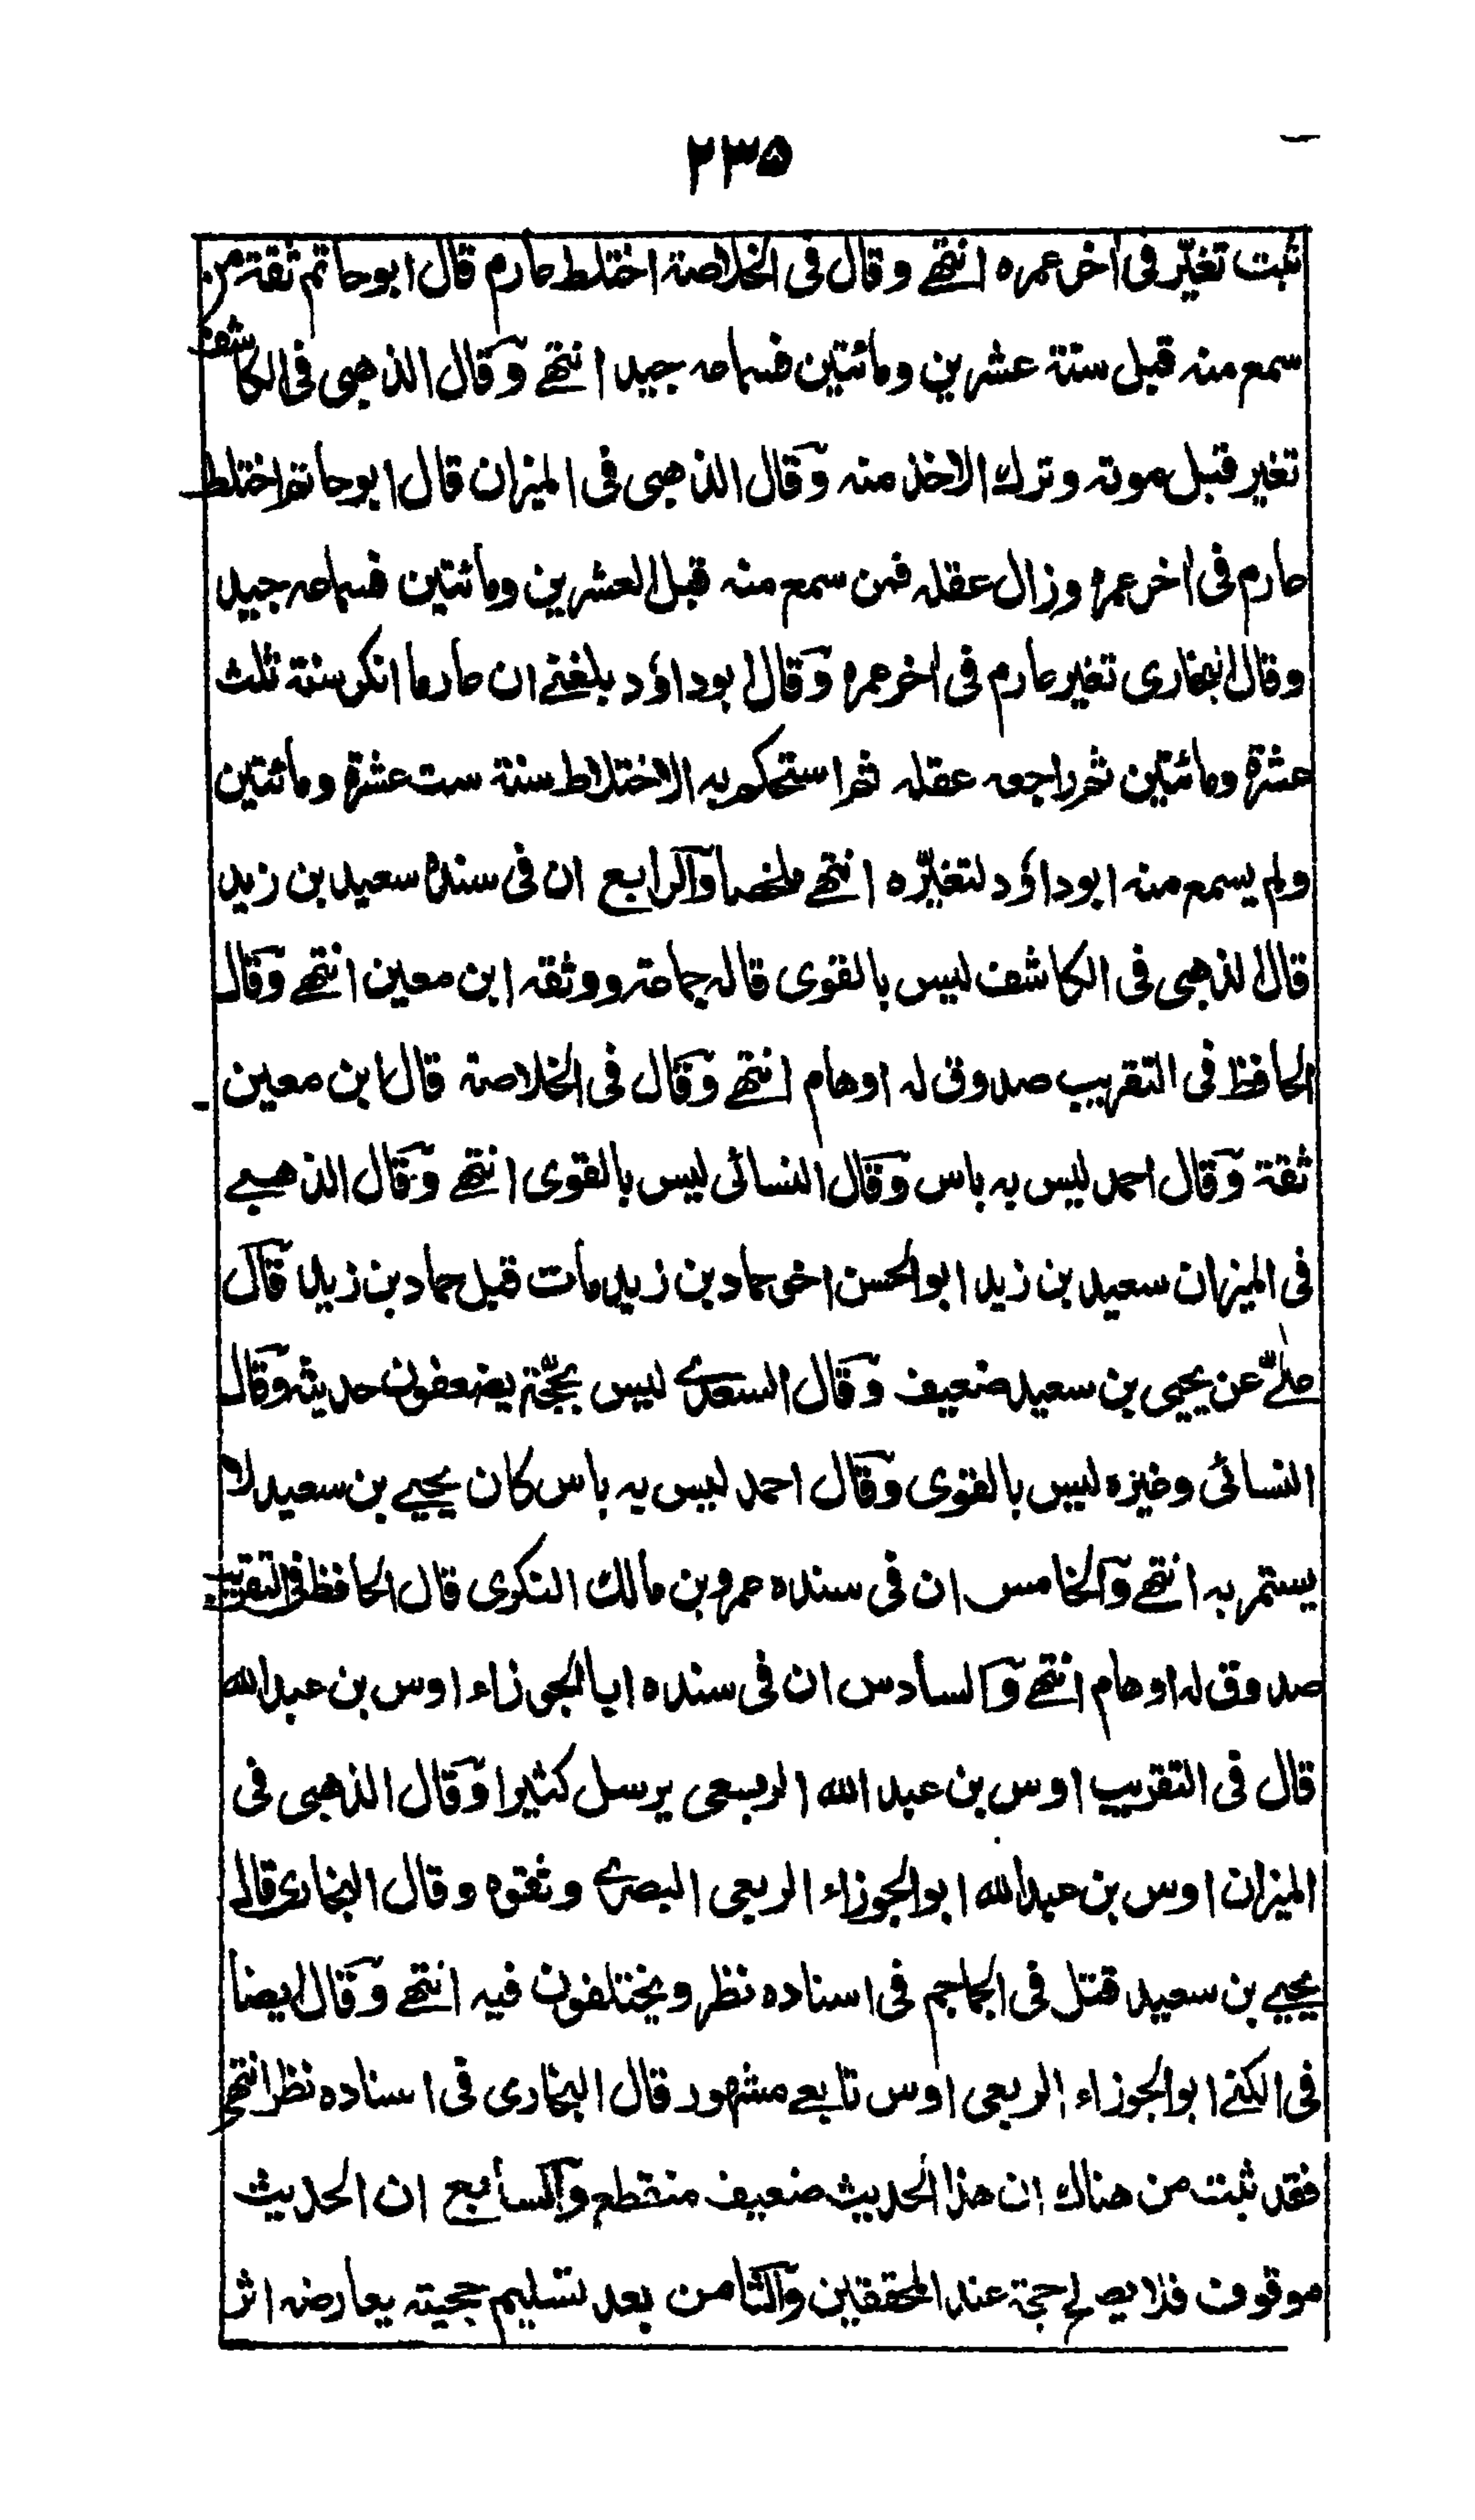 ٢٣٥
ثبت تغيّر فى اخر عمره انتهے وقال فى الخلاصة اختلط عارم قال ابوحاتم ثقة من
سمع منه قبل سنة عشرين ومائتين فسماعه جيد انتهے وقال الذهبى فى الكاشف
تغير قبل موته وترك الاخذ منه وقال الذهبى فى الميزان قال ابوحاتم اختلط
عارم فى اخر عمره وزال عقله فمن سمع منه قبل العشرين ومائتين فسماعه جيد
وقال البخارى تغير عارم فى اخر عمره وقال ابوداؤد بلغنے ان عارما انكر سنة ثلث
عشرة ومائتين ثم راجعه عقله ثم استحكم به الاختلاط سنة ست عشرة ومائتين
ولم يسمع منه ابوداؤد لتغيّره انتهے ملخصا والرابع ان فى سنده سعيد بن زيد
قال الذهبى فى الكاشف ليس بالقوى قاله جماعة ووثقه ابن معين انتهے وقال
الحافظ فى التقريب صدوق له اوهام انتهے وقال فى الخلاصة قال ابن معين
ثقة وقال احمد ليس به باس وقال النسائى ليس بالقوى انتهے وقال الذهبے
فى الميزان سعيد بن زيد ابوالحسن اخو حماد بن زيد مات قبل حماد بن زيد قال
علےّ عن يحيى بن سعيد ضعيف وقال السعدے ليس بحجّة يضعفون حديثه وقال
النسائى وغيره ليس بالقوى وقال احمد ليس به باس كان يحيے بن سعيد لا
يستمر به انتهے والخامس ان فى سنده عمرو بن مالك النكرى قال الحافظ فى التقريب
صدوق له اوهام انتهے والسادس ان فى سنده ابا الجوزاء اوس بن عبدالله
قال فى التقريب اوس بن عبدالله الربعى يرسل كثيرا وقال الذهبى فى
الميزان اوس بن عبدالله ابوالجوزاء الربعى البصرے وثقوه وقال البخارى قال
يحيے بن سعيد قتل فى الجماجم فى اسناده نظر ويختلفون فيه انتهے وقال ايضا
فى الكنے ابوالجوزاء الربعى اوس تابعے مشهور قال البخارى فى اسناده نظر انتهے
فقد ثبت من هناك ان هذا الحديث ضعيف منقطع والسابع ان الحديث
موقوف فلا يصلح حجة عند المحققين والثامن بعد تسليم حجيته يعارضه اثر